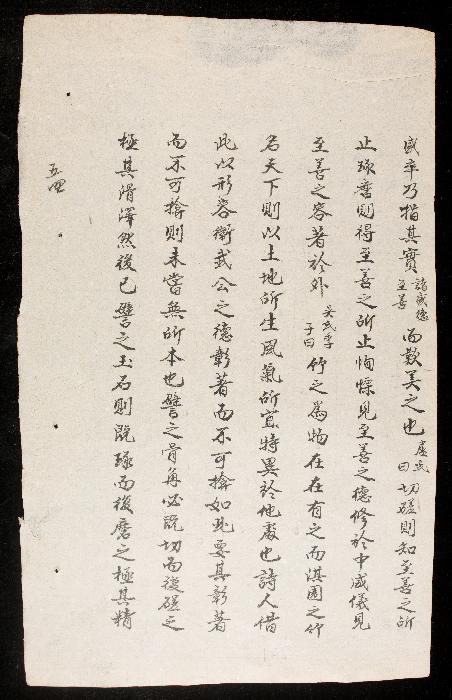 盛卒乃指其實諸盛德至善而歎美之也盧氏曰切磋則知至善之所
止琢磨則得至善之所止恂慄見至善之德修於中威儀見
至善之容著於外吳氏季子曰竹之爲物在在有之而淇園之竹
名天下則以土地所生風氣所宜特異於他處也詩人借
此以形容衛武公之德彰著而不可揜如此要其彰著
而不可揜則未嘗無所本也譬之骨角必既切而後磋之
極其滑澤然後已譬之玉石則既琢而後磨之極其精
五四